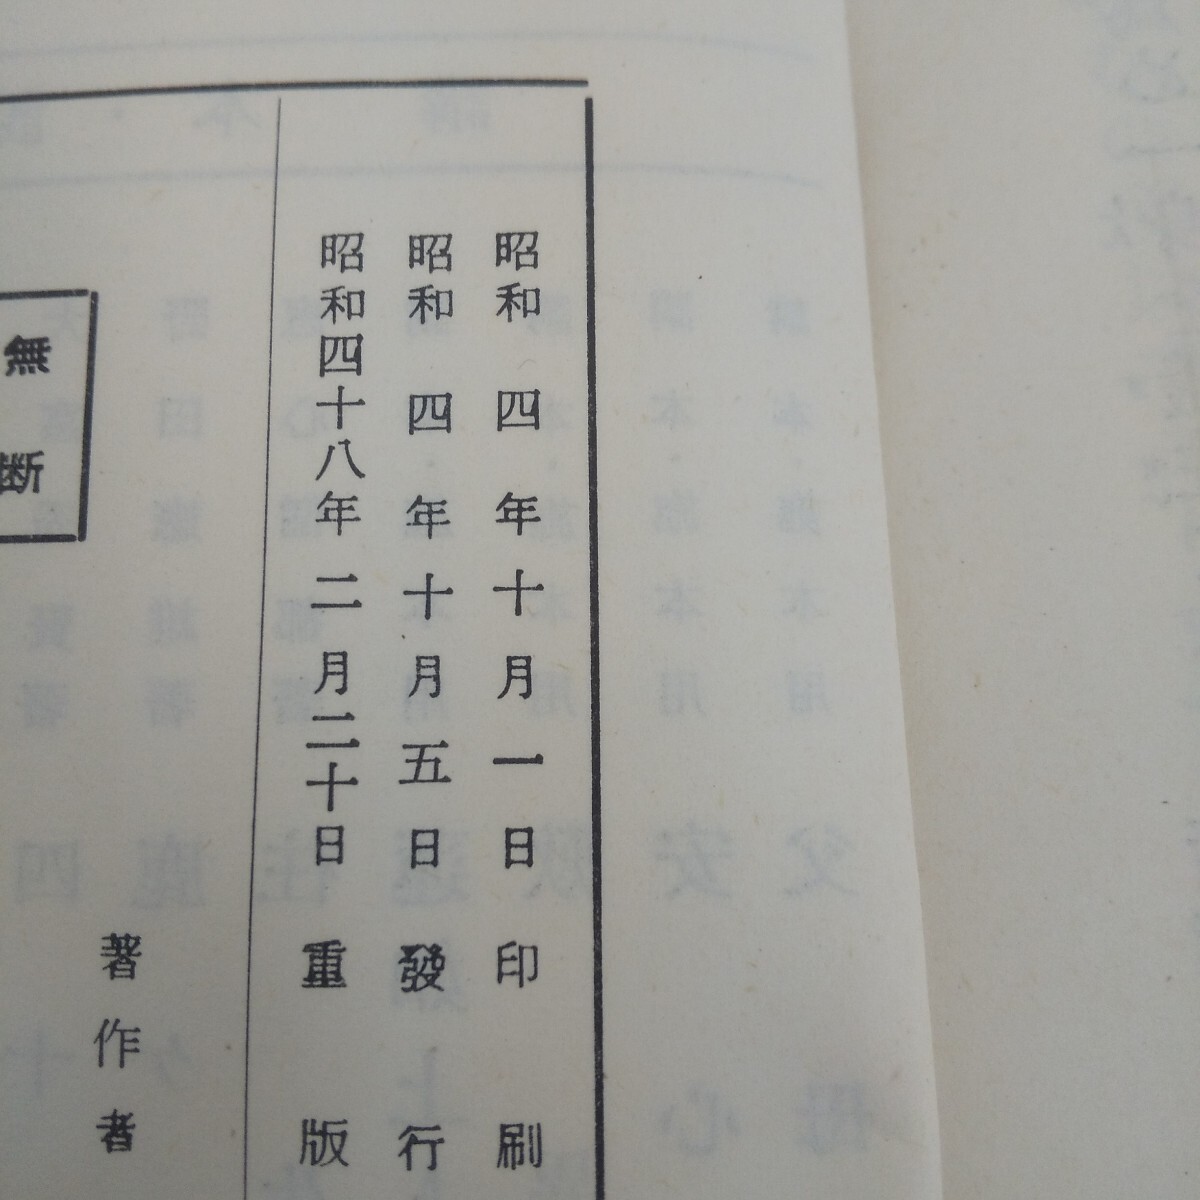 昭和四年十月一日印刷
昭和四年十月五日發行
昭和四十八年二月二十日重版
著作者
無断